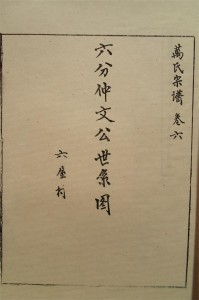 萬氏宗譜 卷六
六分仲文公世系图
六屋村